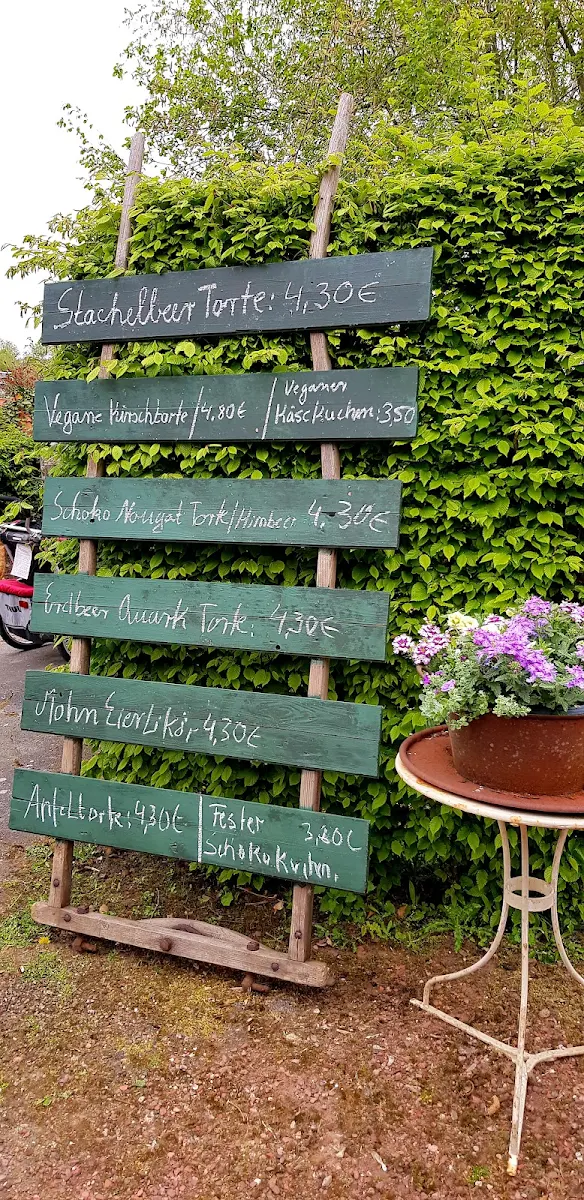 Stachelbeer Torte: 4,30€
Vegane Kirschtorte/4.80€ / Veganer
Käsekuchn. 3,50
Schoko Nougat Torte/Himbeer 4,30€
Erdbeer Quark Torte. 4,30€
Mohn Eierlikör 4,30€
Apfeltorte: 4,30€ | Fester 3,20€
Schokokuchn.